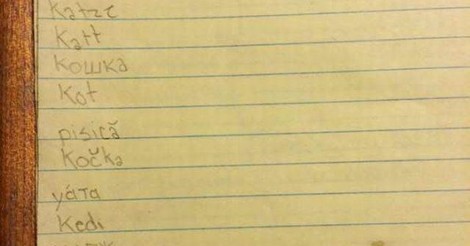 Katze
Katt
кошка
Kot
pisică
Kočka
γάτα
Kedi